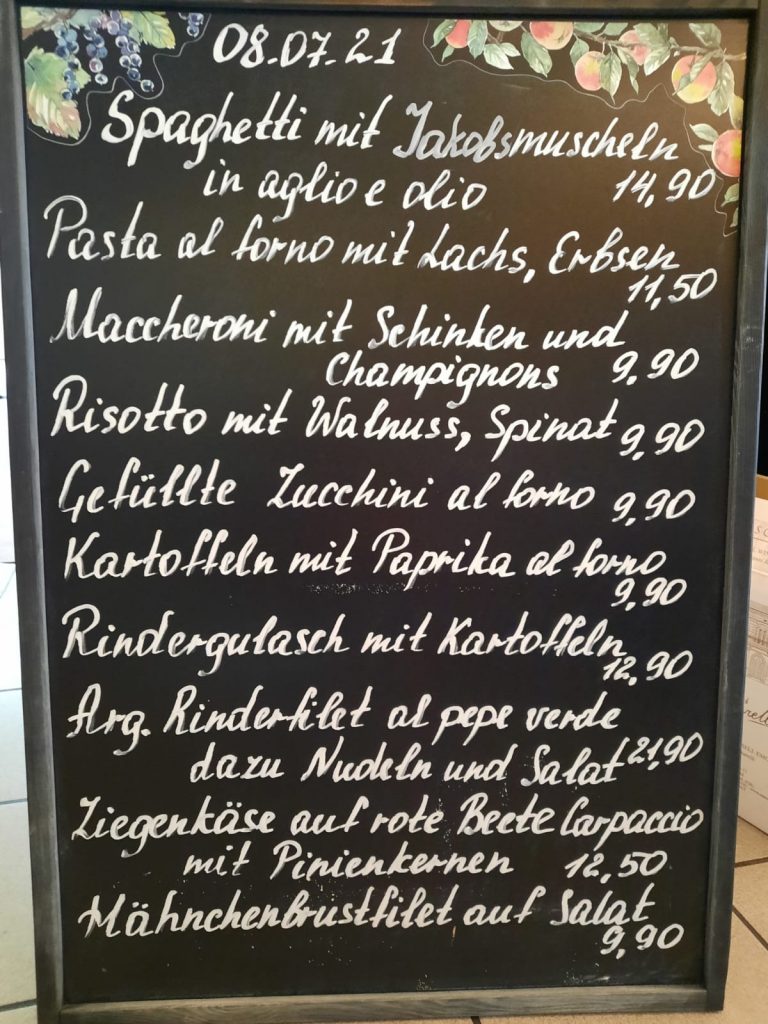 08.07.21
Spaghetti mit Jakobsmuscheln
in aglio e olio 14,90
Pasta al forno mit Lachs, Erbsen
11,50
Maccheroni mit Schinken und
Champignons 9,90
Risotto mit Walnuss, Spinat 9,90
Gefüllte Zucchini al forno 9,90
Kartoffeln mit Paprika al forno
9,90
Rindergulasch mit Kartoffeln
12,90
Arg. Rinderfilet al pepe verde
dazu Nudeln und Salat 21,90
Ziegenkäse auf rote Beete Carpaccio
mit Pinienkernen 12,50
Hähnchenbrustfilet auf Salat
9,90